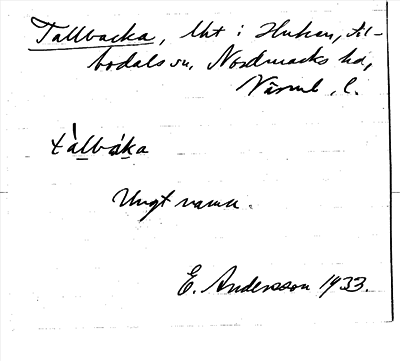 Tallbacka, lht i Huken, Sil-
bodals sn, Nordmarks hd,
Värml. l.
tàlbáka
Ungt namn.
E. Andersson 1933.